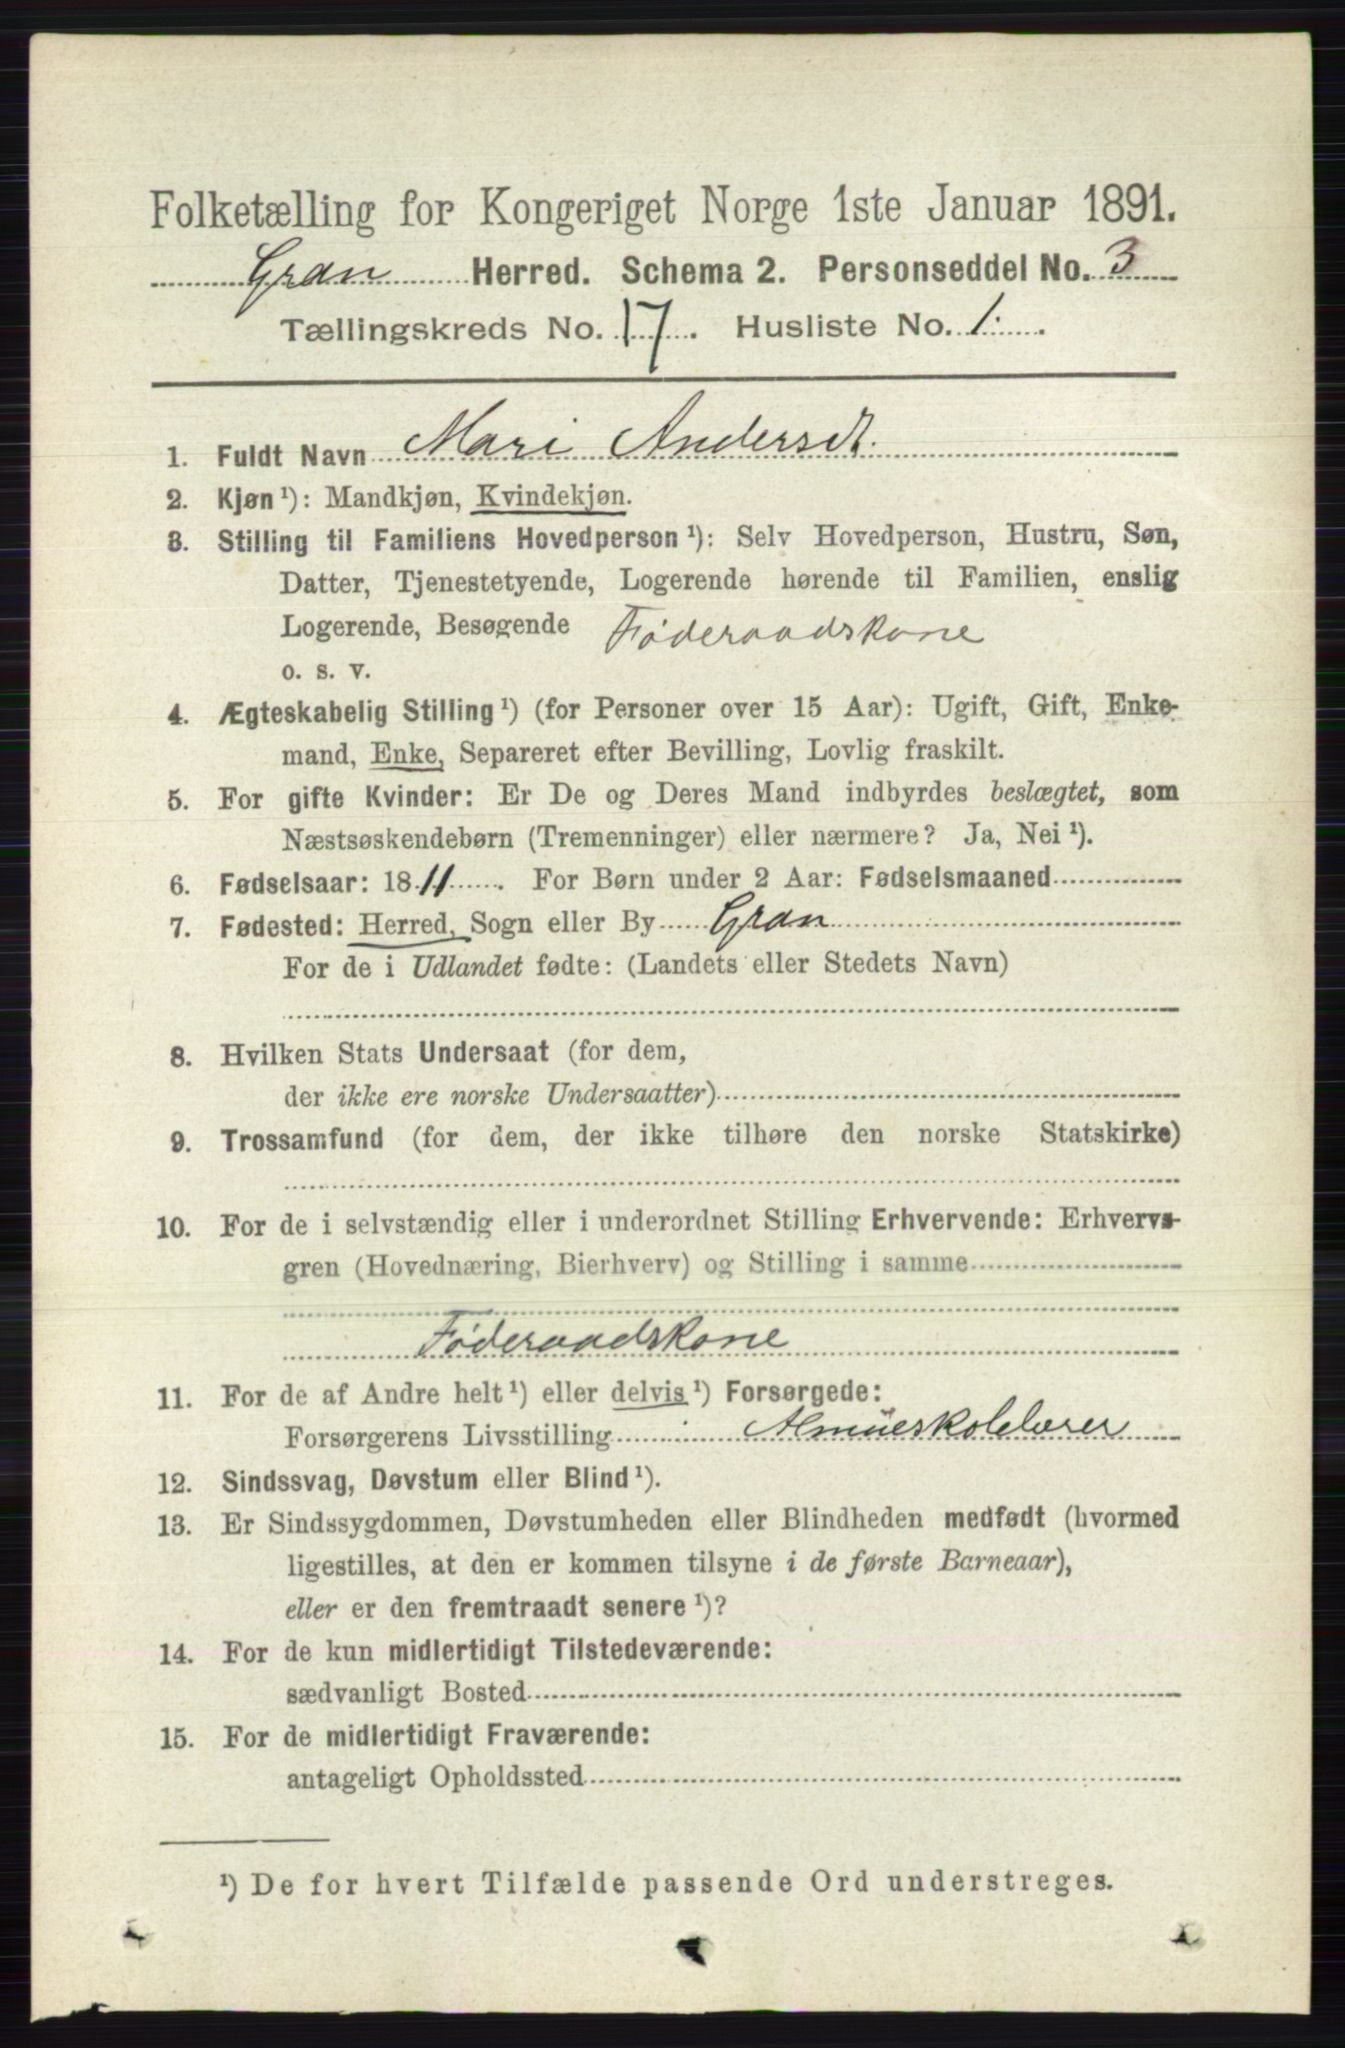 Folketælling for Kongeriget Norge 1ste Januar 1891.
Gran Herred. Schema 2. Personseddel No. 3
Tællingskreds No. 17. Husliste No. 1.
1. Fuldt Navn Mari Andersdt.
2. Kjøn ¹): Mandkjøn, Kvindekjøn.
3. Stilling til Familiens Hovedperson ¹): Selv Hovedperson, Hustru, Søn,
Datter, Tjenestetyende, Logerende hørende til Familien, enslig
Logerende, Besøgende Føderaadskone
o. s. v.
4. Ægteskabelig Stilling ¹) (for Personer over 15 Aar): Ugift, Gift, Enke-
mand, Enke, Separeret efter Bevilling, Lovlig fraskilt.
5. For gifte Kvinder: Er De og Deres Mand indbyrdes beslægtet, som
Næstsøskendebørn (Tremenninger) eller nærmere? Ja, Nei ¹).
6. Fødselsaar: 1811. For Børn under 2 Aar: Fødselsmaaned
7. Fødested: Herred, Sogn eller By Gran
For de i Udlandet fødte: (Landets eller Stedets Navn)
8. Hvilken Stats Undersaat (for dem,
der ikke ere norske Undersaatter)
9. Trossamfund (for dem, der ikke tilhøre den norske Statskirke)
10. For de i selvstændig eller i underordnet Stilling Erhvervende: Erhvervs-
gren (Hovednæring, Bierhverv) og Stilling i samme
Føderaadskone
11. For de af Andre helt ¹) eller delvis ¹) Forsørgede:
Forsørgerens Livsstilling Almueskolelærer
12. Sindssvag, Døvstum eller Blind ¹).
13. Er Sindssygdommen, Døvstumheden eller Blindheden medfødt (hvormed
ligestilles, at den er kommen tilsyne i de første Barneaar),
eller er den fremtraadt senere ¹)?
14. For de kun midlertidigt Tilstedeværende:
sædvanligt Bosted
15. For de midlertidigt Fraværende:
antageligt Opholdssted
¹) De for hvert Tilfælde passende Ord understreges.